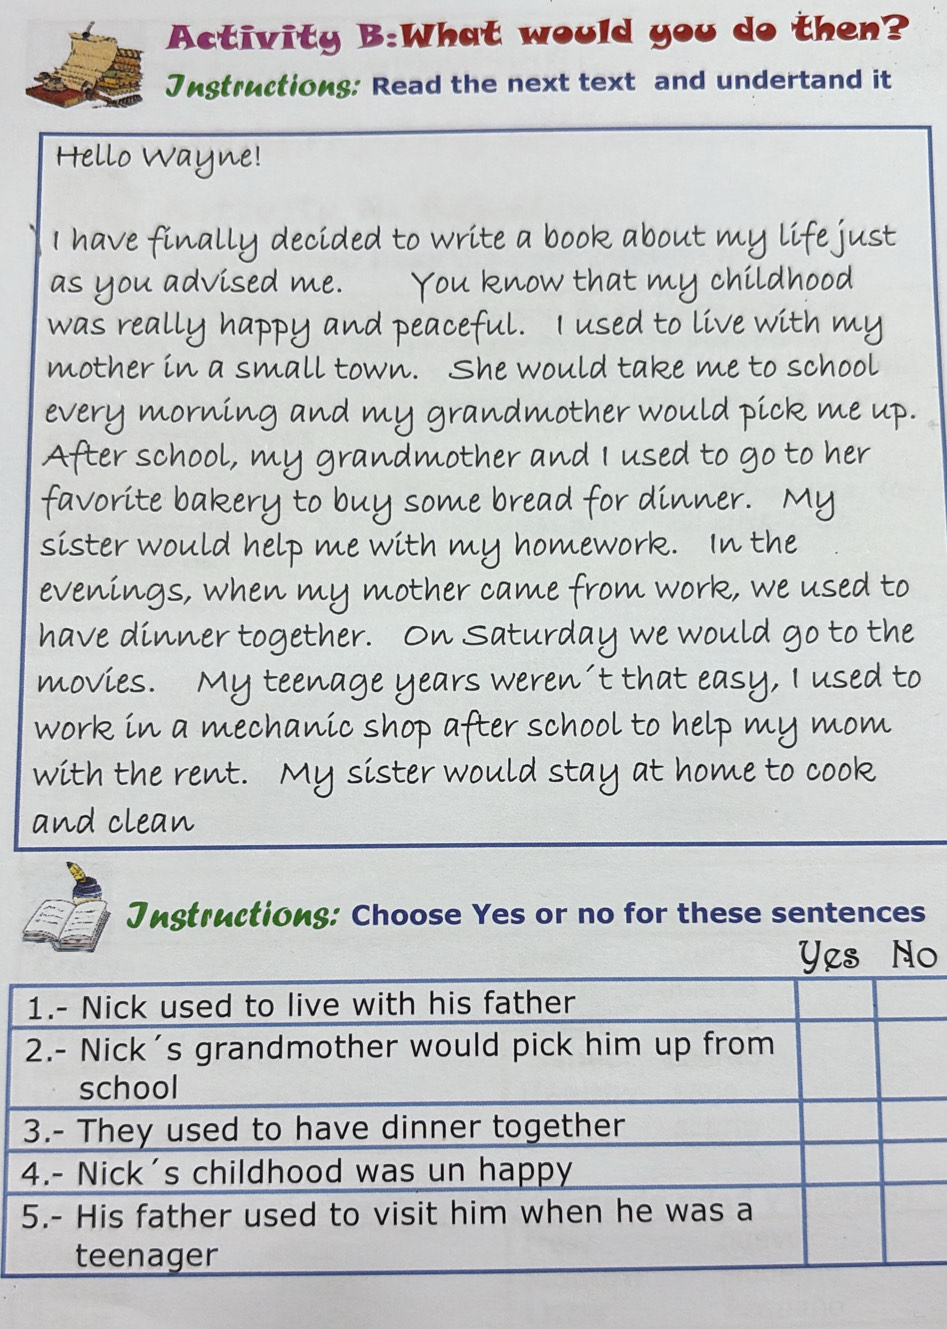 Activity B:What would you do then?
Instructions: Read the next text and undertand it
Hello Wayne!
I have finally decided to write a book about my life just
as you advised me. You know that my childhood
was really happy and peaceful. I used to live with my
mother in a small town. She would take me to school
every morning and my grandmother would pick me up.
After school, my grandmother and I used to go to her
favorite bakery to buy some bread for dinner. My
sister would help me with my homework. In the
evenings, when my mother came from work, we used to
have dinner together. On Saturday we would go to the
movies. My teenage years weren´t that easy, I used to
work in a mechanic shop after school to help my mom
with the rent. My sister would stay at home to cook
and clean
Instructions: Choose Yes or no for these sentences
Yes No
1.- Nick used to live with his father
2.- Nick´s grandmother would pick him up from
school
3.- They used to have dinner together
4.- Nick´s childhood was un happy
5.- His father used to visit him when he was a
teenager